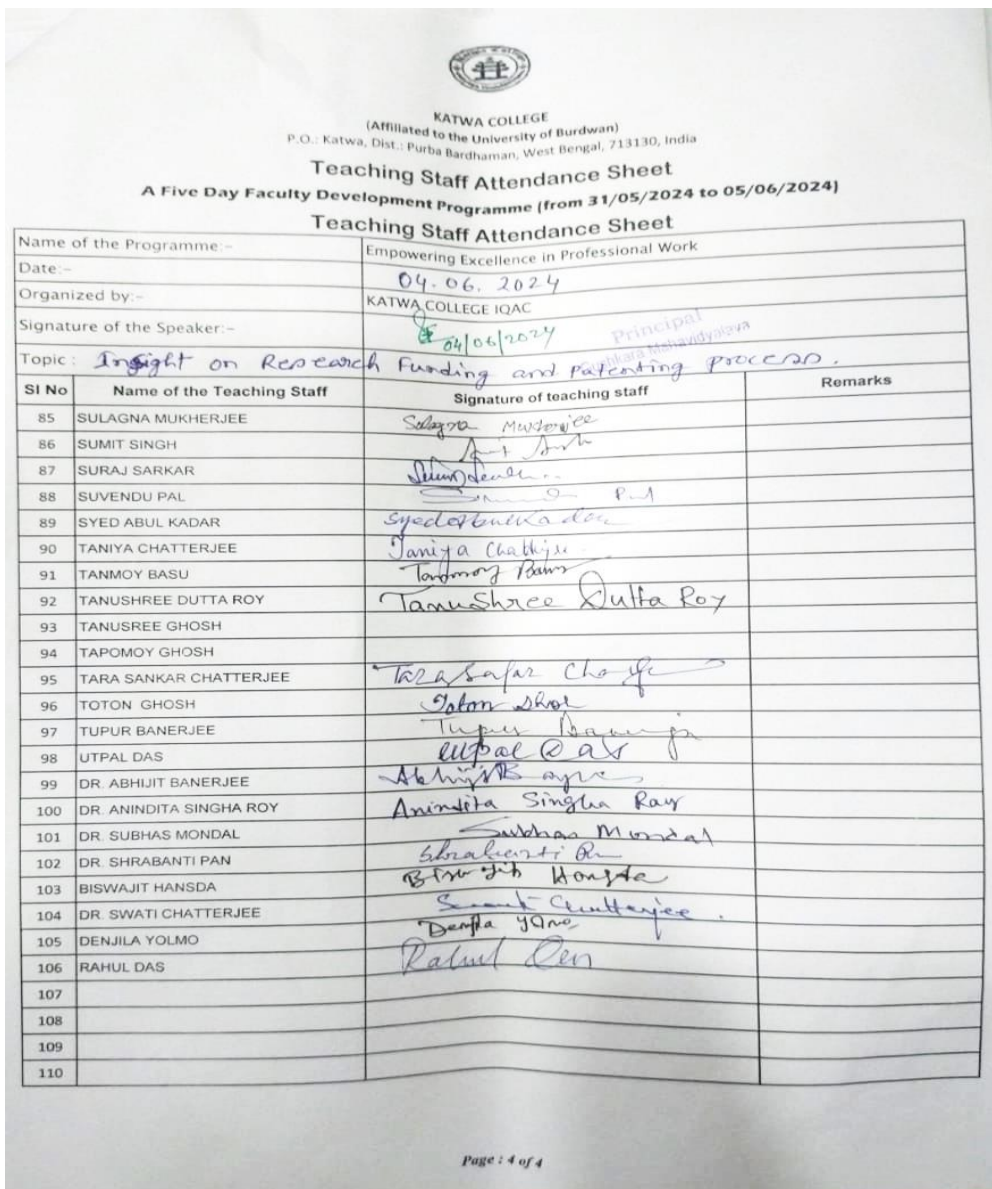 KATWA COLLEGE
(Affiliated to the University of Burdwan)
P.O.: Katwa, Dist.: Purba Bardhaman, West Bengal, 713130, India
Teaching Staff Attendance Sheet
A Five Day Faculty Development Programme (from 31/05/2024 to 05/06/2024)
Teaching Staff Attendance Sheet
Name of the Programme:- Empowering Excellence in Professional Work
Date:- 04.06.2024
Organized by:- KATWA COLLEGE IQAC
Signature of the Speaker:- 04/06/2024 Principal
Mahavidyalaya
Topic : Insight on Research Funding and Patenting process.
Sl No Name of the Teaching Staff Signature of teaching staff Remarks
85 SULAGNA MUKHERJEE Sulagna Mukherjee
86 SUMIT SINGH
87 SURAJ SARKAR
88 SUVENDU PAL Pal
89 SYED ABUL KADAR Syed Abul Kadar
90 TANIYA CHATTERJEE Taniya Chatterjee
91 TANMOY BASU Tanmoy Basu
92 TANUSHREE DUTTA ROY TanuShree Dutta Roy
93 TANUSREE GHOSH
94 TAPOMOY GHOSH
95 TARA SANKAR CHATTERJEE Tara
96 TOTON GHOSH Toton Ghosh
97 TUPUR BANERJEE Tupur Banerjee
98 UTPAL DAS Utpal Das
99 DR. ABHIJIT BANERJEE Abhijit
100 DR. ANINDITA SINGHA ROY Anindita Singha Roy
101 DR. SUBHAS MONDAL Subhas Mondal
102 DR. SHRABANTI PAN Shrabanti
103 BISWAJIT HANSDA Biswajit Hansda
104 DR. SWATI CHATTERJEE Chatterjee
105 DENJILA YOLMO Denjila Yolmo
106 RAHUL DAS Rahul Das
107
108
109
110
Page : 4 of 4